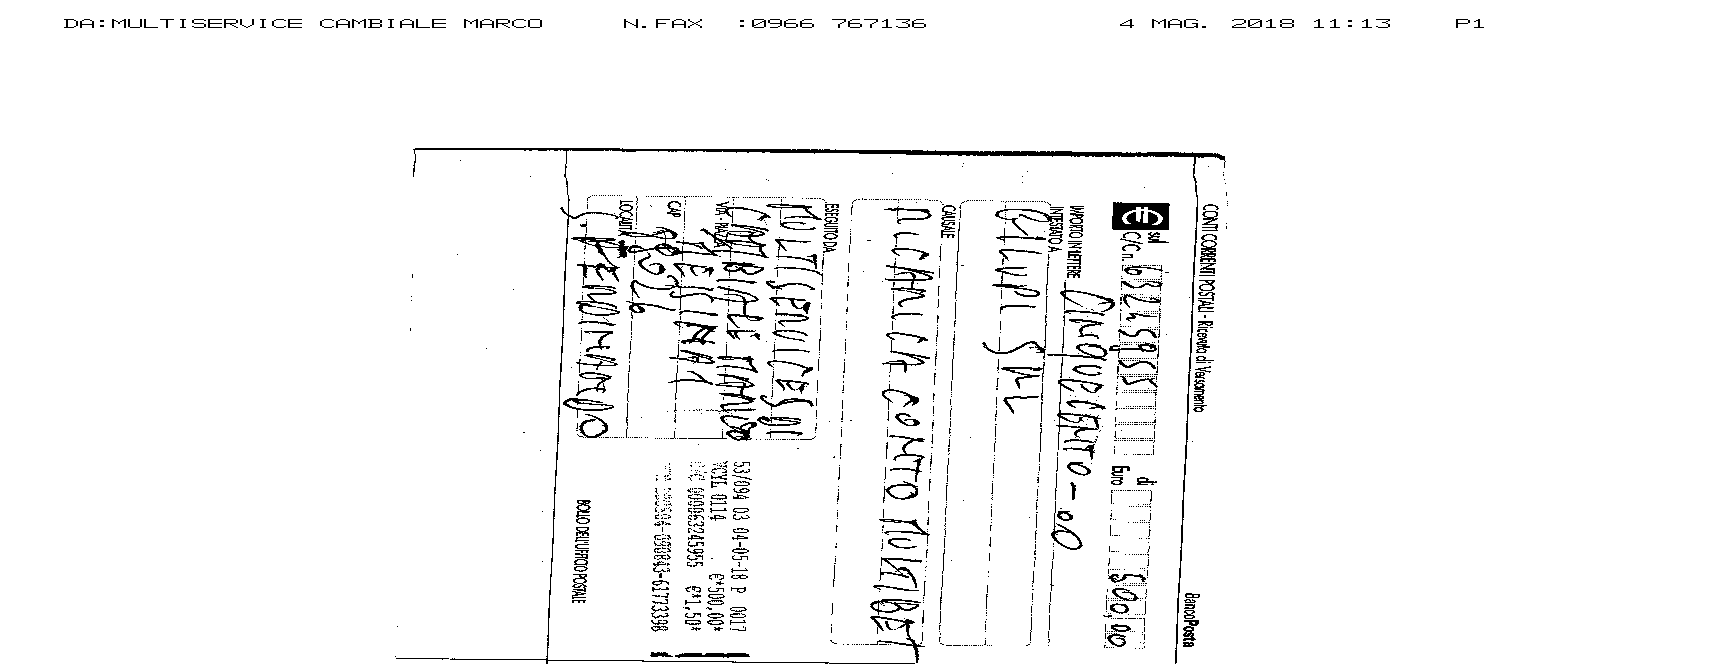 DA:MULTISERVICE CAMBIALE MARCO N.FAX :0966 767136 4 MAG. 2018 11:13 P1
CONTI CORRENTI POSTALI - Ricevuta di Versamento BancoPosta
sul C/C n. 63245955 di Euro 500,00
IMPORTO IN LETTERE CINQUECENTO-00
INTESTATO A
BILUPI SRL
CAUSALE
RICARICA CONTO MULTIBET
ESEGUITO DA
MULTISERVICE SRL
CAMBIALE MARCO
VIA - PIAZZA
MESSINA 1
CAP
89026
LOCALITÀ
S. FERDINANDO
53/094 03 04-05-18 P 0017
VCYL 0114 €*500,00*
000063245955 €*1,50*
BOLLO DELL'UFFICIO POSTALE